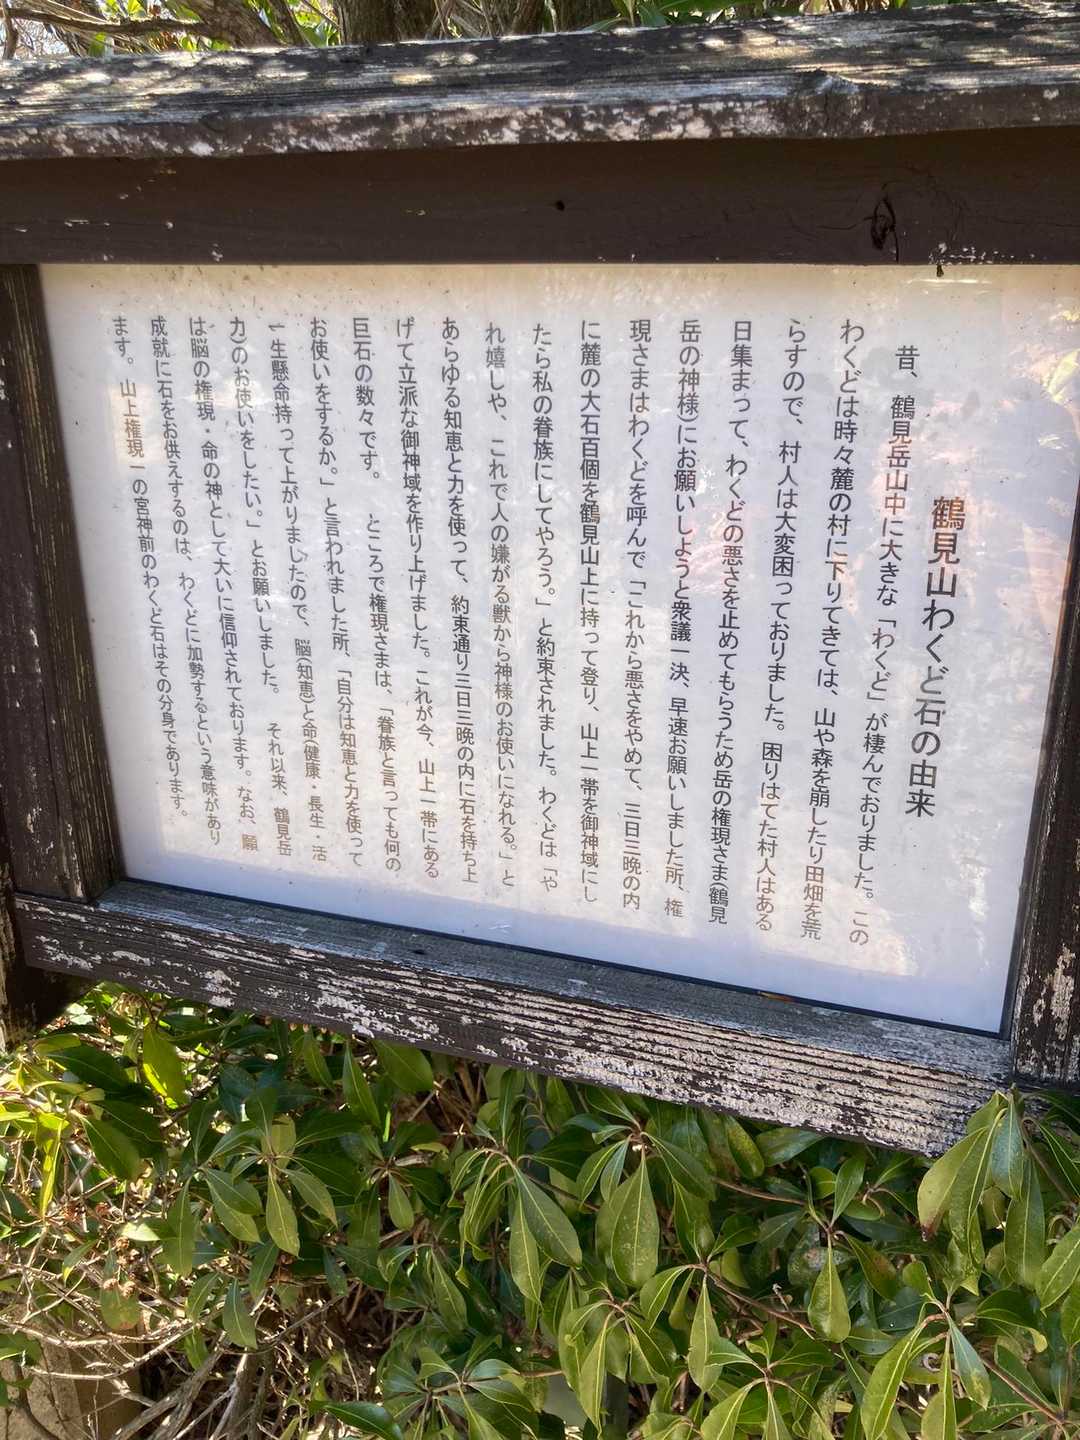 鶴見山わくど石の由来
昔、鶴見岳山中に大きな「わくど」が棲んでおりました。この
わくどは時々麓の村に下りてきては、山や森を崩したり田畑を荒
らすので、村人は大変困っておりました。困りはてた村人はある
日集まって、わくどの悪さを止めてもらうため岳の権現さま(鶴見
岳の神様)にお願いしようと衆議一決、早速お願いしました所、権
現さまはわくどを呼んで「これから悪さをやめて、三日三晩の内
に麓の大石百個を鶴見山上に持って登り、山上一帯を御神域にし
たら私の眷族にしてやろう。」と約束されました。わくどは「や
れ嬉しや、これで人の嫌がる獣から神様のお使いになれる。」と
あらゆる知恵と力を使って、約束通り三日三晩の内に石を持ち上
げて立派な御神域を作り上げました。これが今、山上一帯にある
巨石の数々です。　ところで権現さまは、「眷族と言っても何の
お使いをするか。」と言われました所、「自分は知恵と力を使って
一生懸命持って上がりましたので、脳(知恵)と命(健康・長生・活
力)のお使いをしたい。」とお願いしました。　それ以来、鶴見岳
は脳の権現・命の神として大いに信仰されております。なお、願
成就に石をお供えするのは、わくどに加勢するという意味があり
ます。山上権現一の宮神前のわくど石はその分身であります。